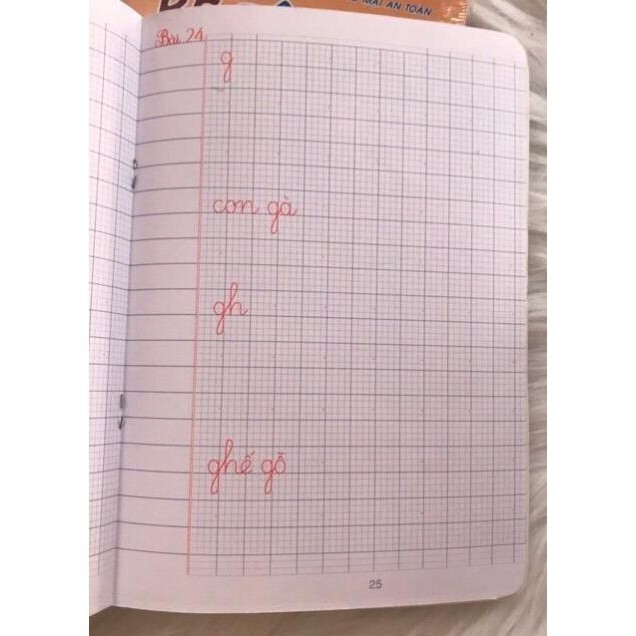 MÁI AN TOÀN
Bài 24
g
con gà
gh
ghế gỗ
25